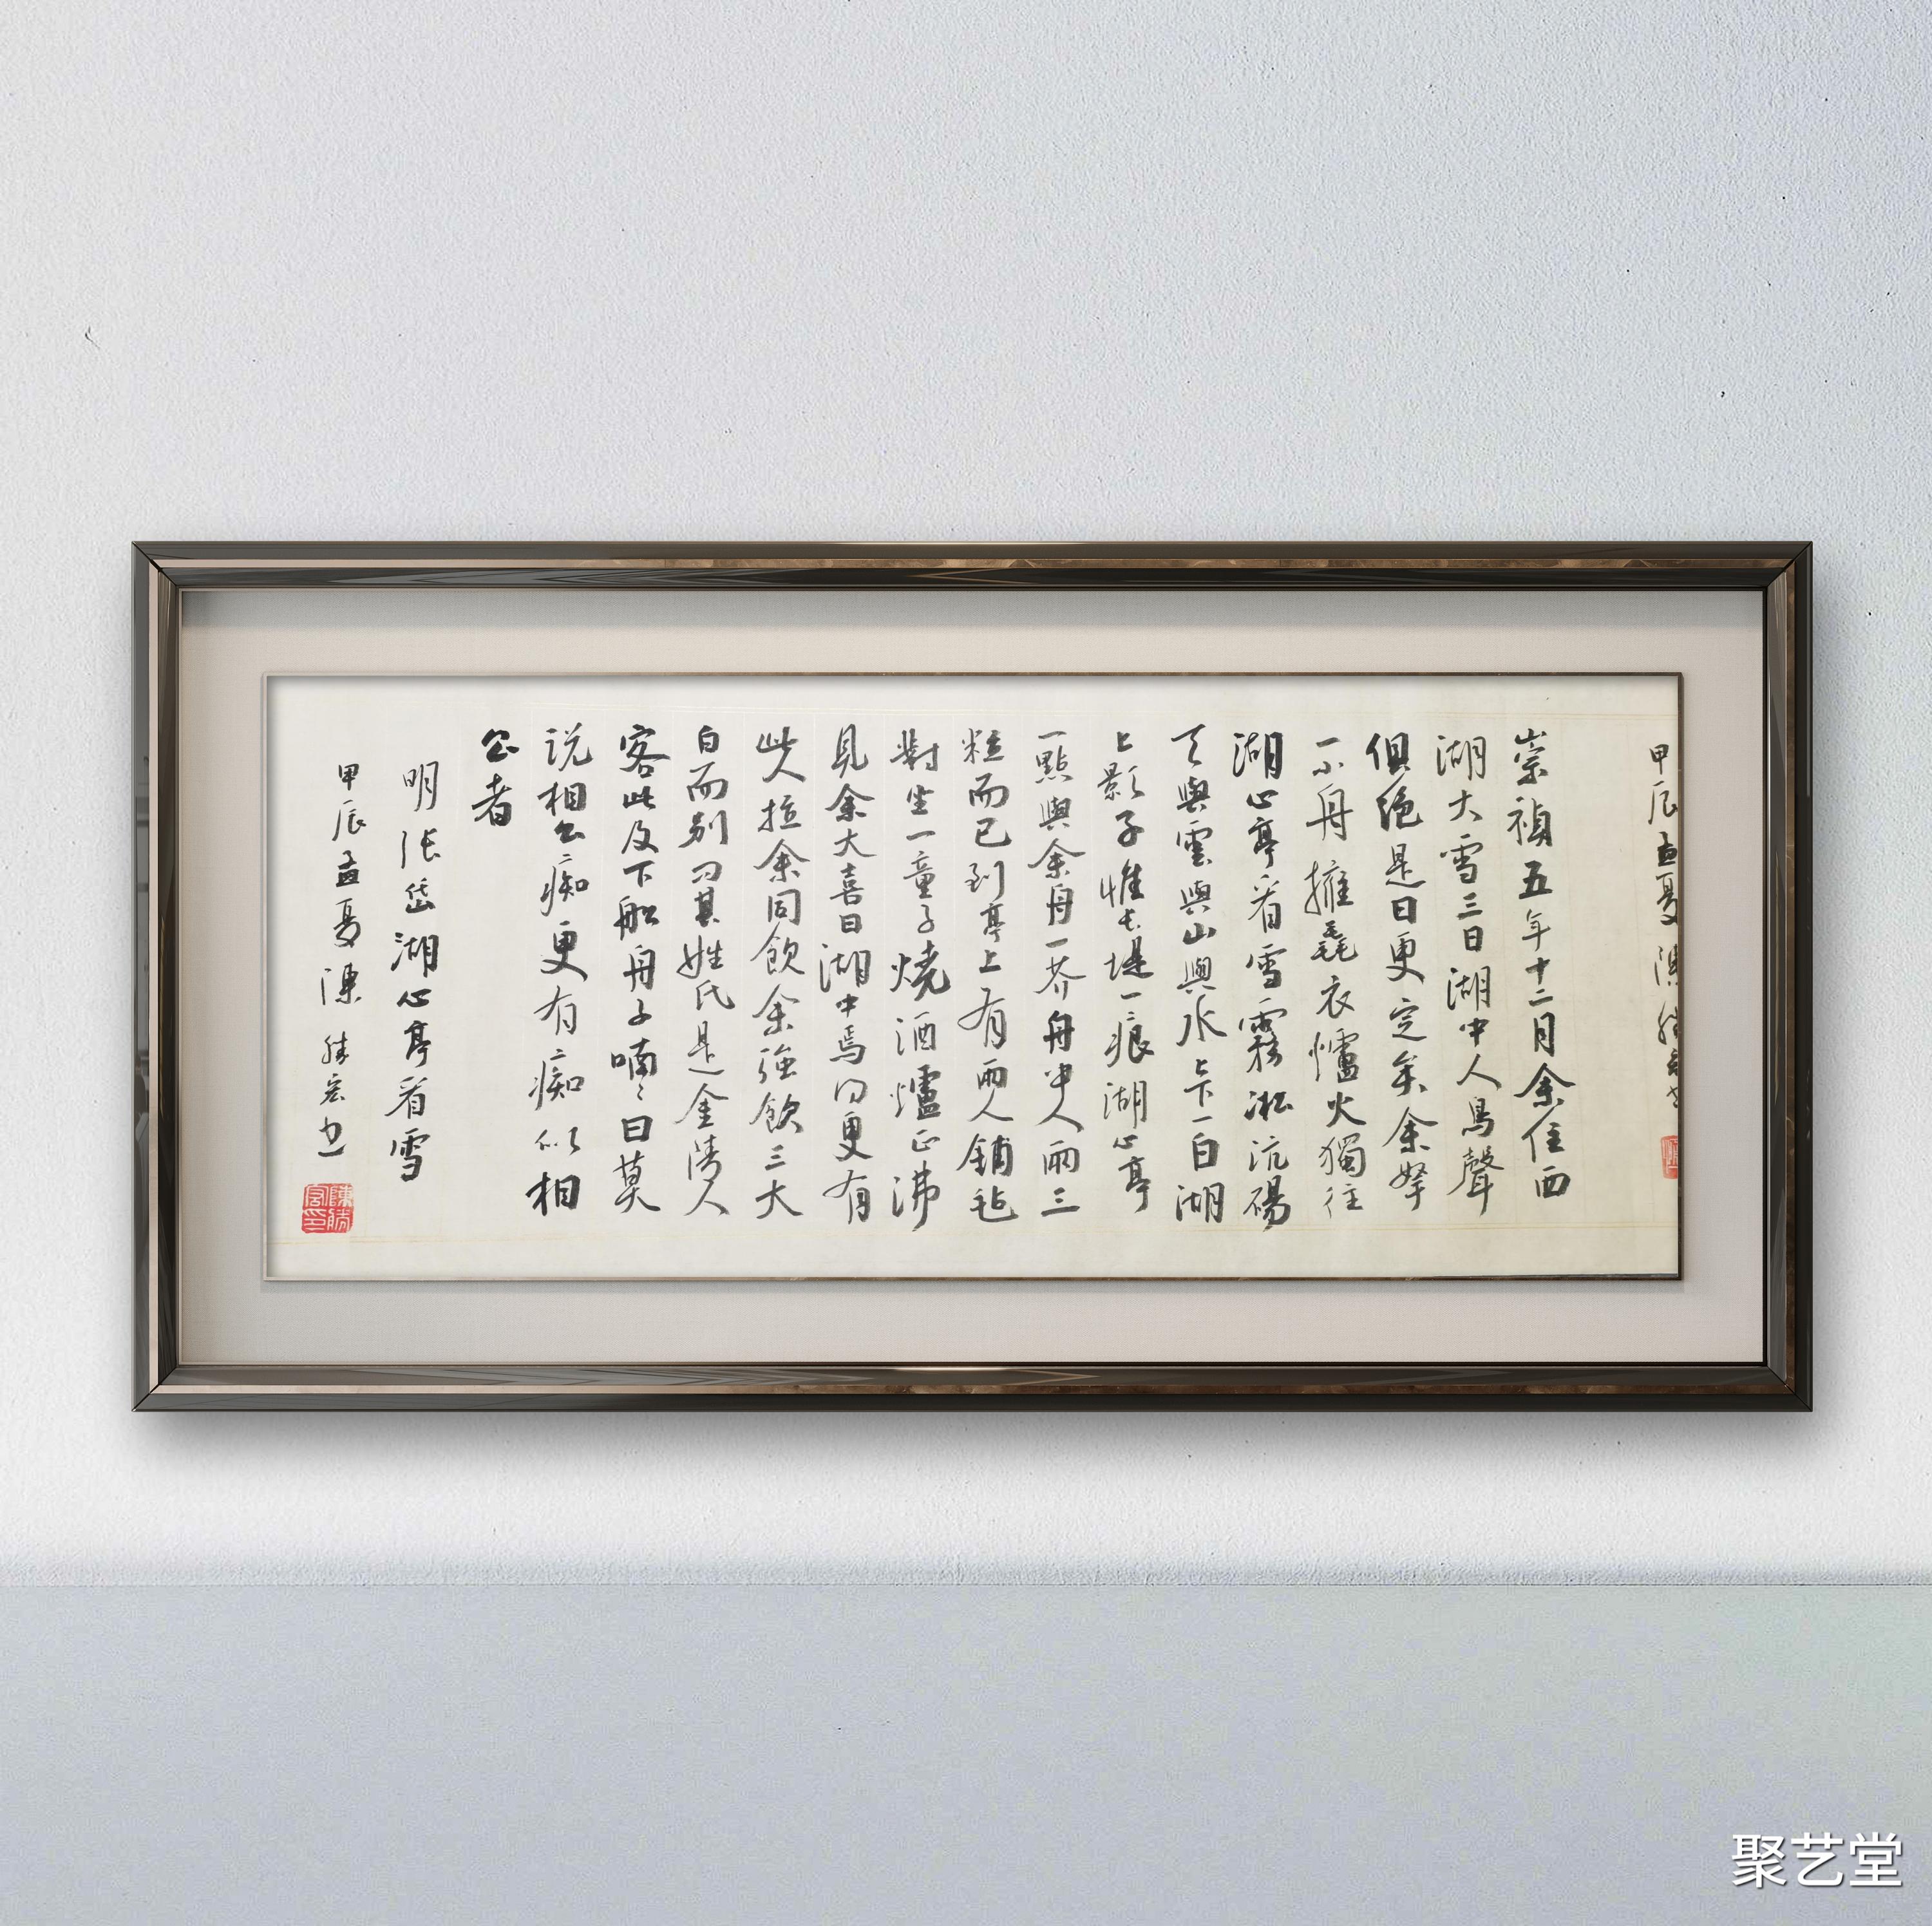 甲辰孟夏陳
崇禎五年十二月余住西
湖大雪三日湖中人鳥聲
俱絕是日更定矣余拏
一小舟擁毳衣爐火獨往
湖心亭看雪霧凇沆碭
天與雲與山與水上下一白湖
上影子惟長堤一痕湖心亭
一點與余舟一芥舟中人兩三
粒而已到亭上有兩人鋪毡
對坐一童子燒酒爐正沸
見余大喜曰湖中焉得更有
此人拉余同飲余強飲三大
白而别問其姓氏是金陵人
客此及下船舟子喃々曰莫
説相公痴更有痴似相
公者
明張岱湖心亭看雪
甲辰孟夏陳勝宏书
陳勝宏印
聚艺堂